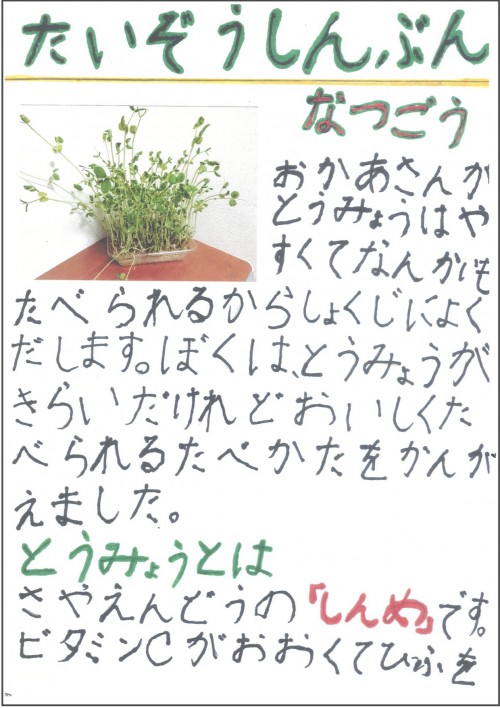 たいぞうしんぶん
なつごう
おかあさんが
とうみょうはや
すくてなんかいも
たべられるからしょくじによく
だします。ぼくは、とうみょうが
きらいだけれどおいしくた
べられるたべかたをかんが
えました。
とうみょうとは
さやえんどうの「しんめ」です。
ビタミンCがおおくてひふを